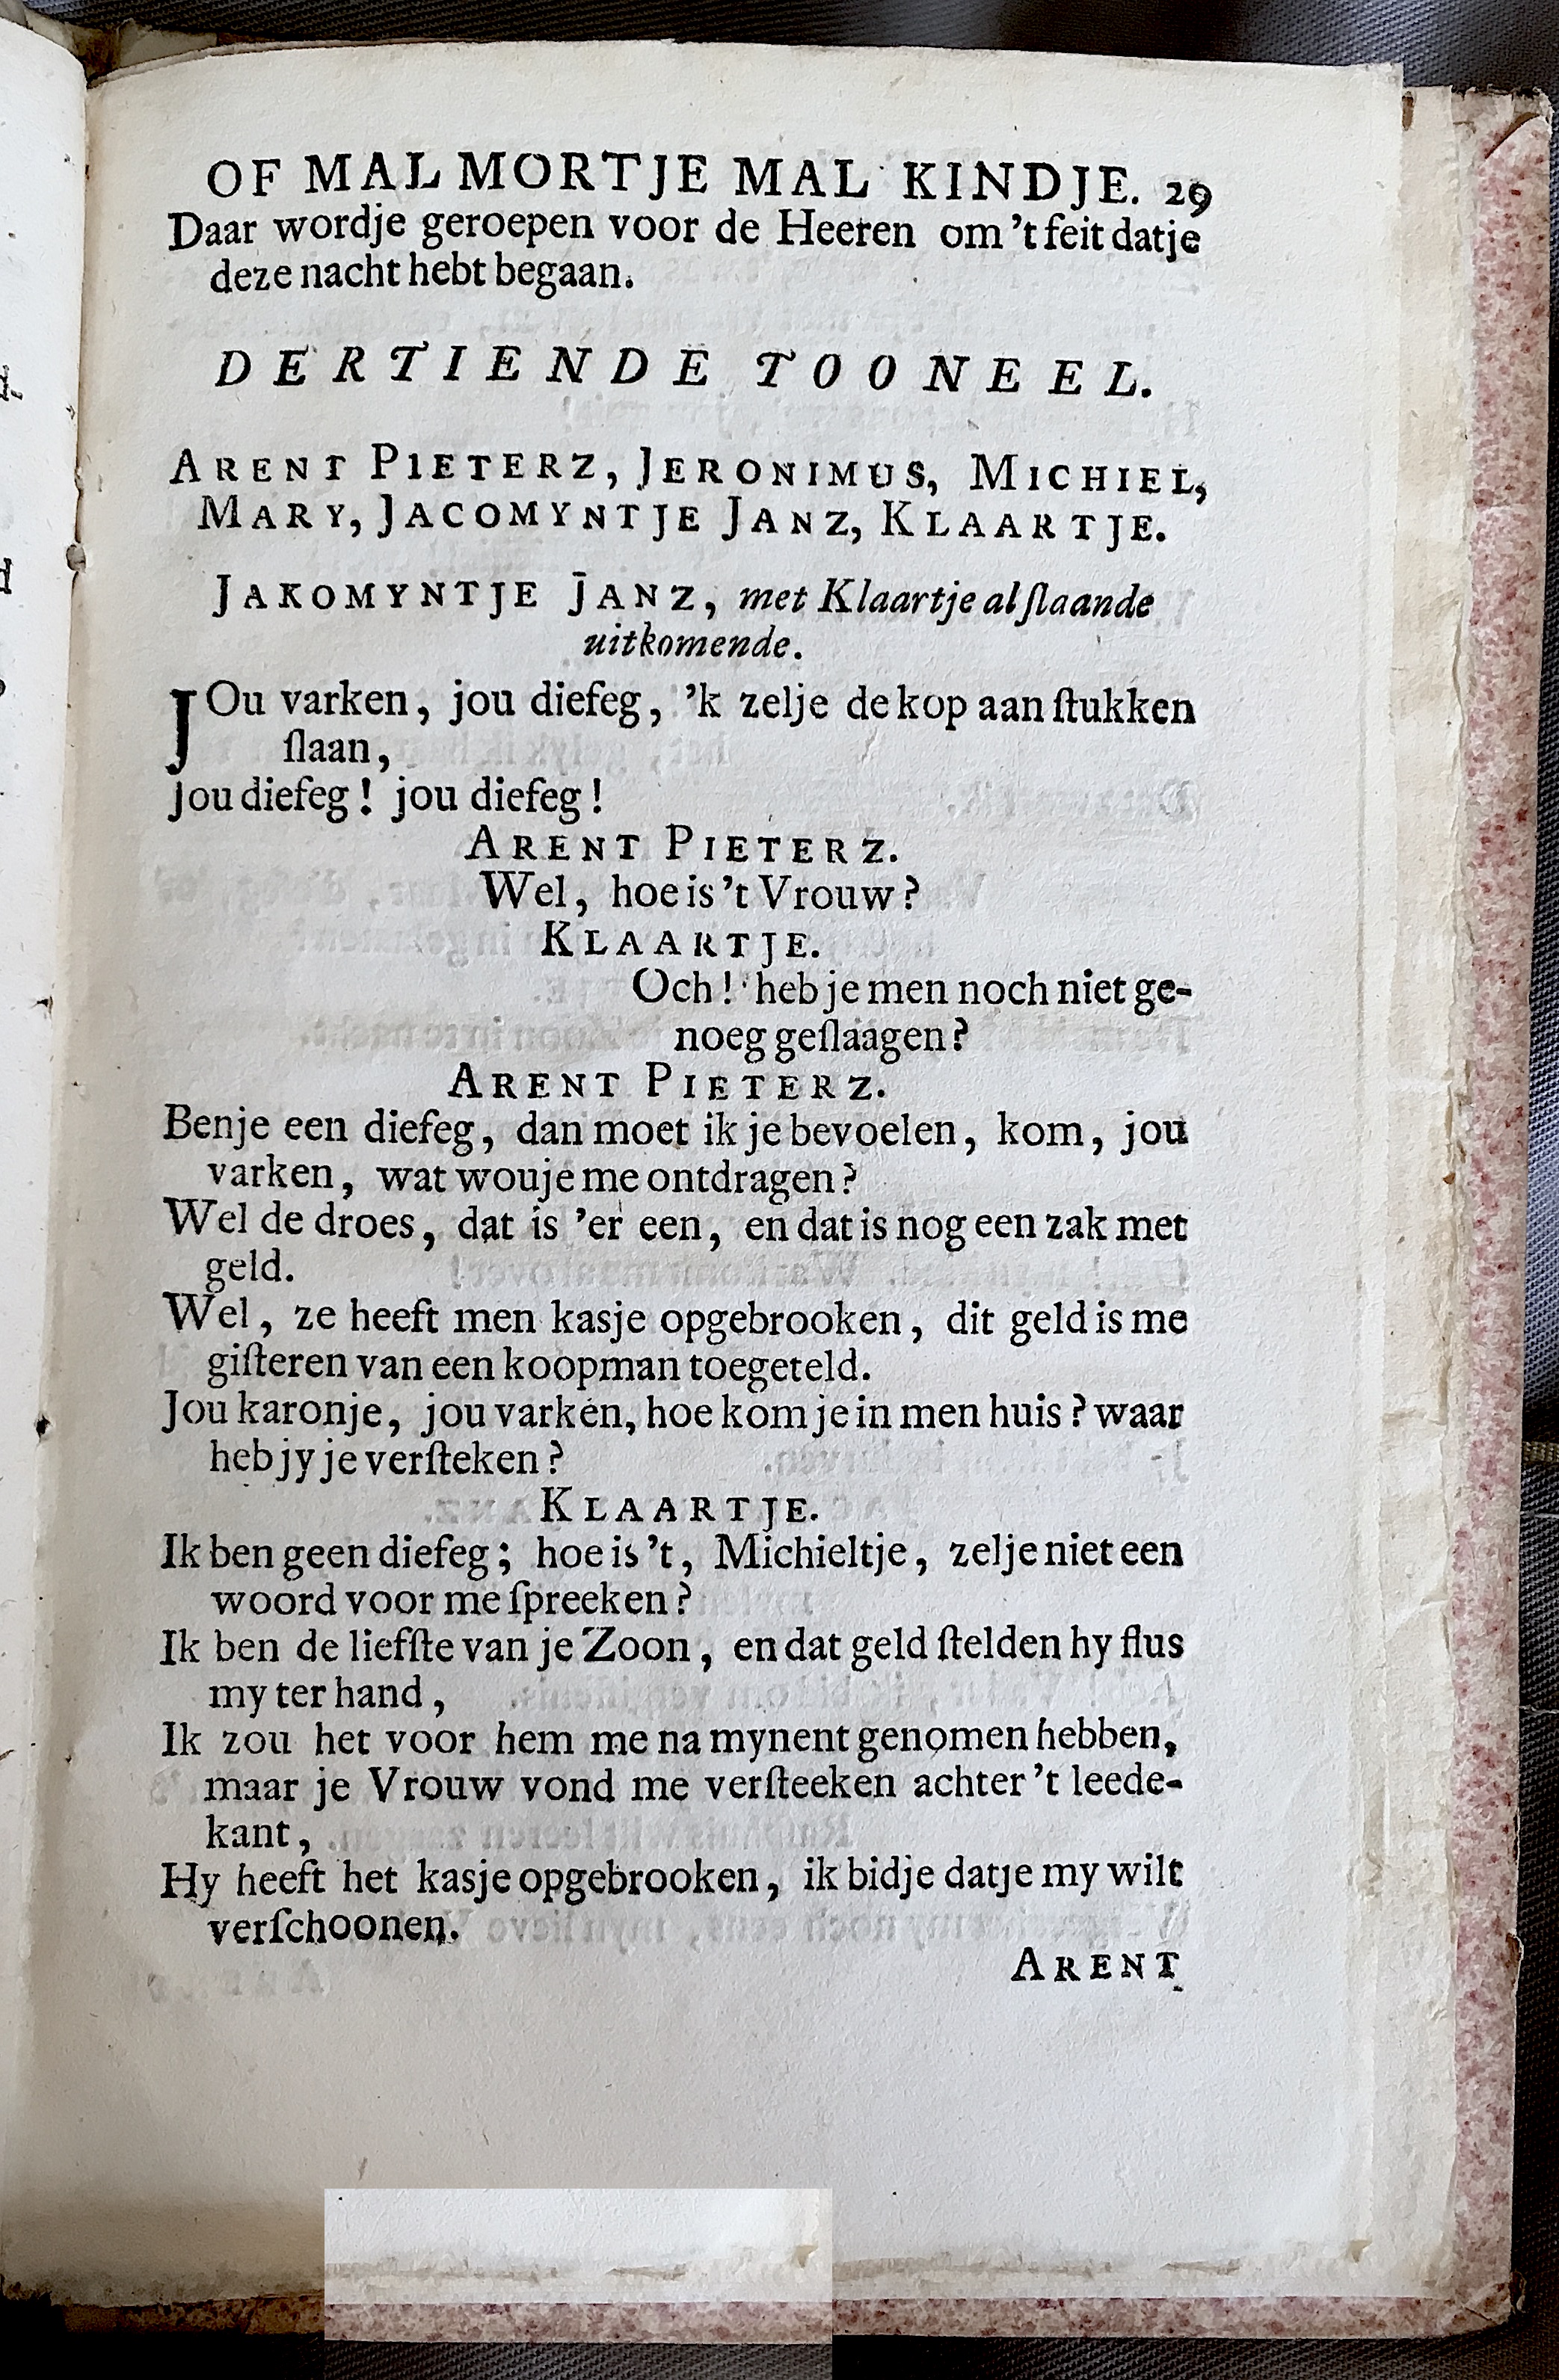 OF MAL MORTJE MAL KINDJE. 29
Daar wordje geroepen voor de Heeren om 't feit datje
deze nacht hebt begaan.
DERTIENDE TOONEEL.
ARENT PIETERZ, JERONIMUS, MICHIEL,
MARY, JACOMYNTJE JANZ, KLAARTJE.
JAKOMYNTJE JANZ, met Klaartje al ſlaande
uitkomende.
JOu varken, jou diefeg, 'k zelje de kop aan ſtukken
ſlaan,
Jou diefeg! jou diefeg!
ARENT PIETERZ.
Wel, hoe is 't Vrouw?
KLAARTJE.
Och! heb je men noch niet ge-
noeg geſlaagen?
ARENT PIETERZ.
Benje een diefeg, dan moet ik je bevoelen, kom, jou
varken, wat wouje me ontdragen?
Wel de droes, dat is 'er een, en dat is nog een zak met
geld.
Wel, ze heeft men kasje opgebrooken, dit geld is me
giſteren van een koopman toegeteld.
Jou karonje, jou varken, hoe kom je in men huis? waar
heb jy je verſteken?
KLAARTJE.
Ik ben geen diefeg; hoe is 't, Michieltje, zelje niet een
woord voor me ſpreeken?
Ik ben de liefſte van je Zoon, en dat geld ſtelden hy flus
my ter hand,
Ik zou het voor hem me na mynent genomen hebben,
maar je Vrouw vond me verſteeken achter 't leede-
kant,
Hy heeft het kasje opgebrooken, ik bidje datje my wilt
verſchoonen.
ARENT